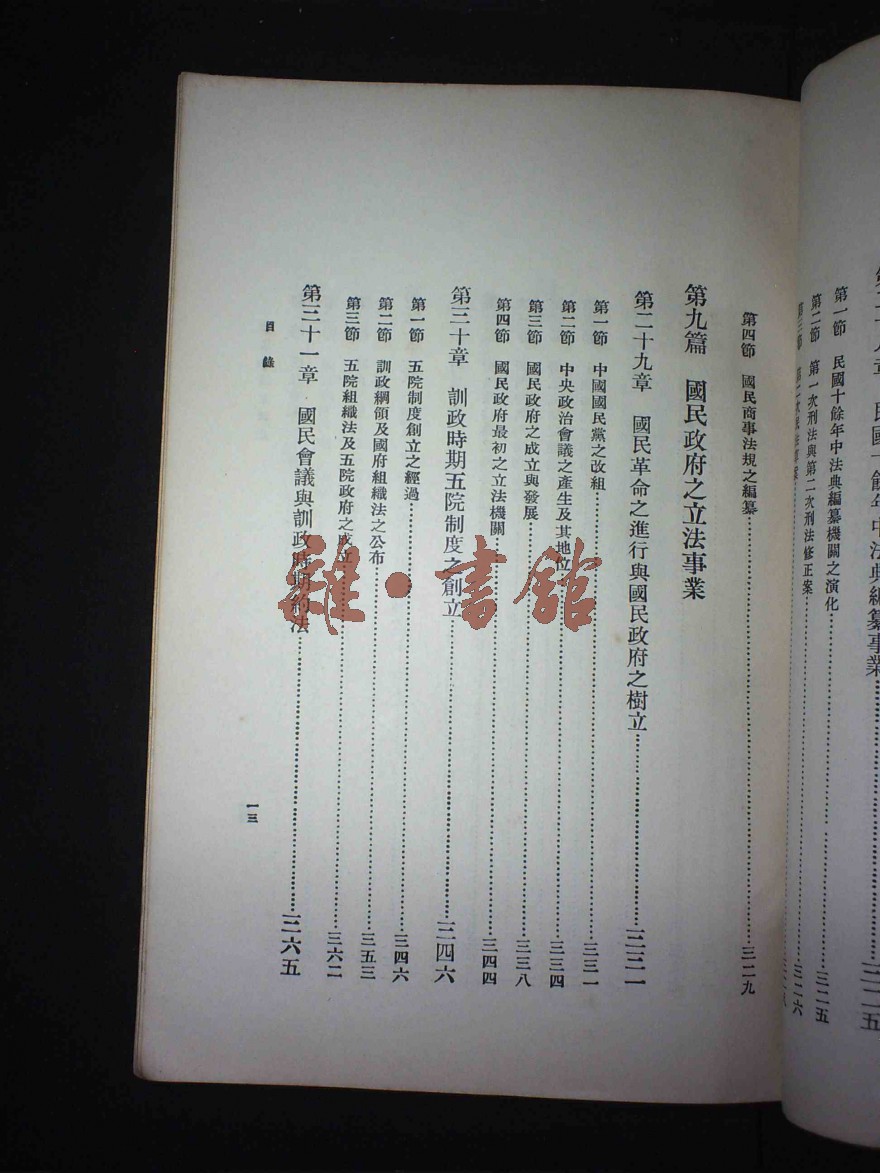 民國十餘年中法典編纂事業……三二五
第一節 民國十餘年中法典編纂機關之演化……三二五
第二節 第一次刑法與第二次刑法修正案……三二六
第四節 國民商事法規之編纂……三二九
第九篇 國民政府之立法事業
第二十九章 國民革命之進行與國民政府之樹立……三三一
第一節 中國國民黨之改組……三三一
第二節 中央政治會議之產生及其地位……三三四
第三節 國民政府之成立與發展……三三八
第四節 國民政府最初之立法機關……三四四
第三十章 訓政時期五院制度之創立……三四六
第一節 五院制度創立之經過……三四六
第二節 訓政綱領及國府組織法之公布……三五三
第三節 五院組織法及五院政府之成立……三六二
第三十一章 國民會議與訓政時期約法……三六五
目錄
一三
雜·書館